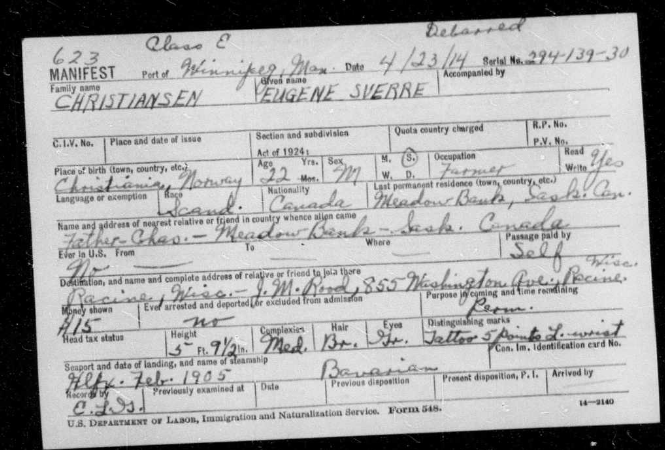 623 Class E Debarred
MANIFEST Port of Winnipeg, Man. Date 4/23/14 Serial No. 294-139-30
Family name Given name Accompanied by
CHRISTIANSEN EUGENE SVERRE
C.I.V. No. Place and date of issue Section and subdivision Quota country charged R.P. No.
Act of 1924: P.V. No.
Place of birth (town, country, etc.) Age Yrs. Sex M. S. Occupation Read
Christiania, Norway 22 Mos. M W. D. Farmer Write Yes
Language or exemption Race Nationality Last permanent residence (town, country, etc.)
Scand. Canada Meadow Bank, Sask. Can.
Name and address of nearest relative or friend in country whence alien came
Father-Chas. - Meadow Bank - Sask. Canada
Ever in U.S. From To Where Passage paid by
No Self
Destination, and name and complete address of relative or friend to join there
Racine, Wisc. - J. M. Rood, 855 Washington Ave., Racine, Wisc.
Money shown Ever arrested and deported, or excluded from admission Purpose in coming and time remaining
415 no Perm.
Head tax status Height Complexion Hair Eyes Distinguishing marks
5 Ft. 9 1/2 In. Med. Br. Gr. Tattoo 5 points L. wrist
Seaport and date of landing, and name of steamship Can. Im. Identification card No.
Hlfx. Feb. 1905 Bavarian
Records by Previously examined at Date Previous disposition Present disposition, P.I. Arrived by
U.S. DEPARTMENT OF LABOR, Immigration and Naturalization Service. Form 548. 14-2140